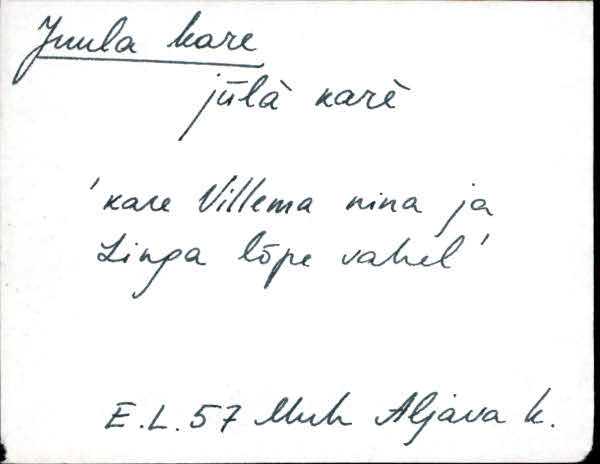 Juula kare
jūlà karè
'kare Villema nina ja
Linga lõpe vahel'
E.L. 57 Muh Aljava k.